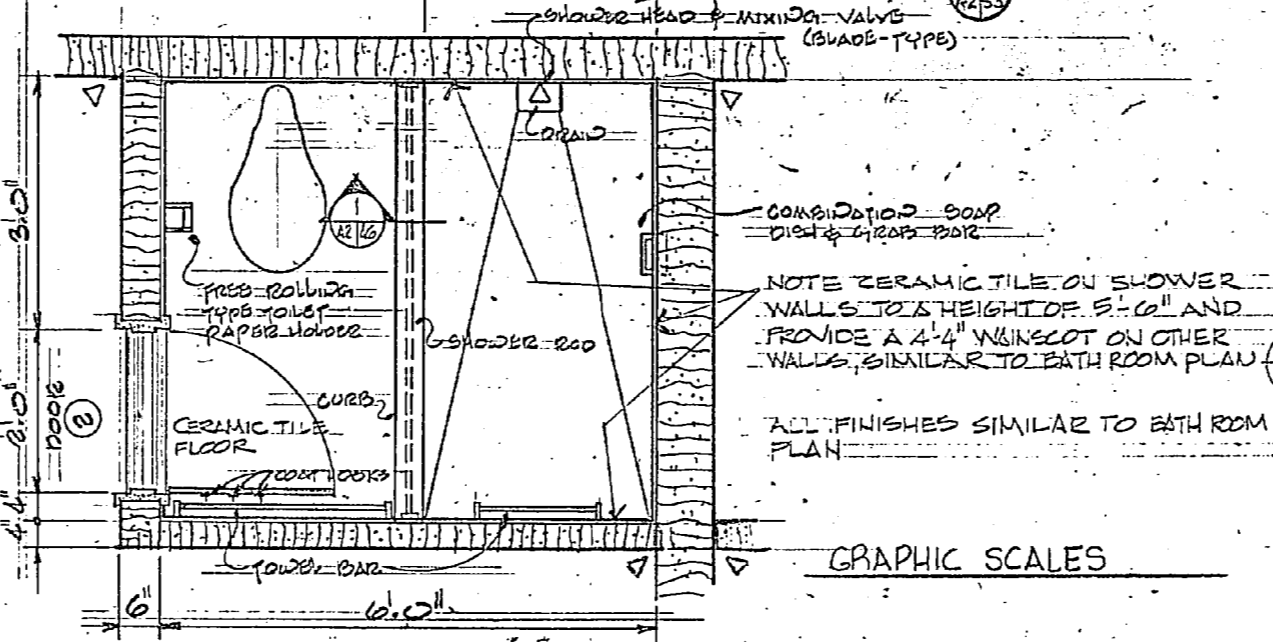 SHOWER HEAD & MIXING VALVE
(BLADE-TYPE)
DRAIN
3'-0"
A2 46
COMBINATION SOAP
DISH & GRAB BAR
FREE ROLLING
TYPE TOILET
PAPER HOLDER
SHOWER ROD
NOTE CERAMIC TILE ON SHOWER
WALLS TO A HEIGHT OF 5'-6" AND
PROVIDE A 4'-4" WAINSCOT ON OTHER
WALLS, SIMILAR TO BATH ROOM PLAN
CURB
2'-0"
DOOR
2
CERAMIC TILE
FLOOR
ALL FINISHES SIMILAR TO BATH ROOM
PLAN
COAT HOOKS
4" 4"
TOWEL BAR
GRAPHIC SCALES
6"
6'-0"